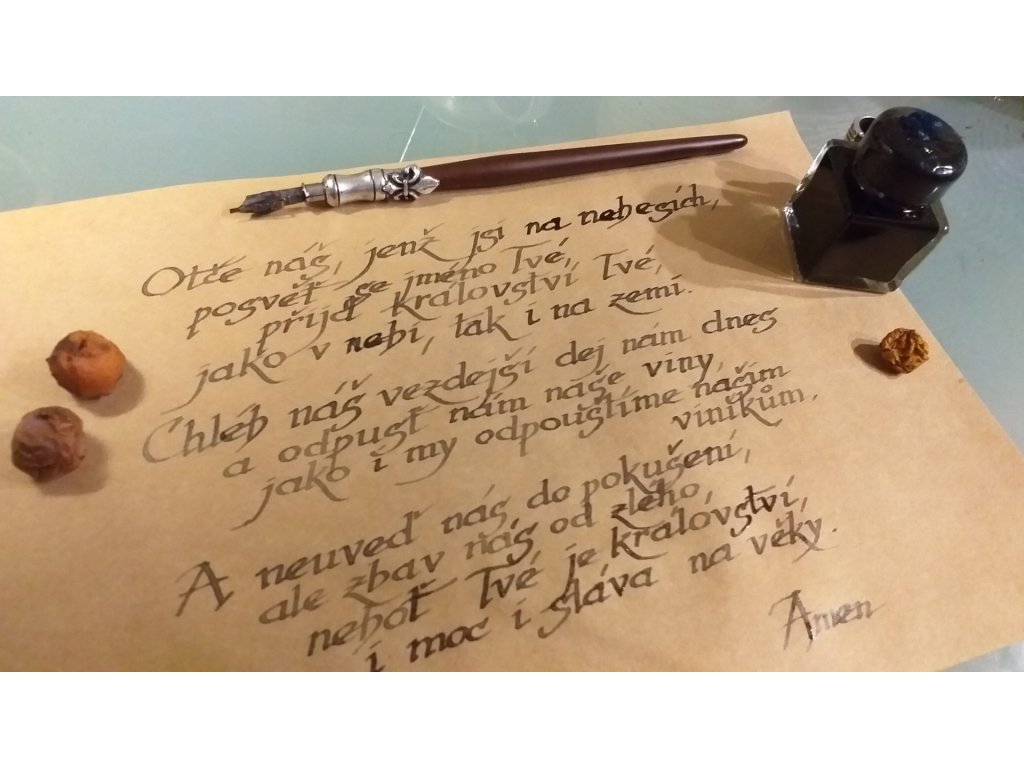 Otče náš, jenž jsi na nebesích,
posvěť se jméno Tvé,
přijď království Tvé,
jako v nebi, tak i na zemi.
Chléb náš vezdejší dej nám dnes
a odpusť nám naše viny,
jako i my odpouštíme našim
viníkům.
A neuveď nás do pokušení,
ale zbav nás od zlého,
neboť Tvé je království,
i moc i sláva na věky.
Amen